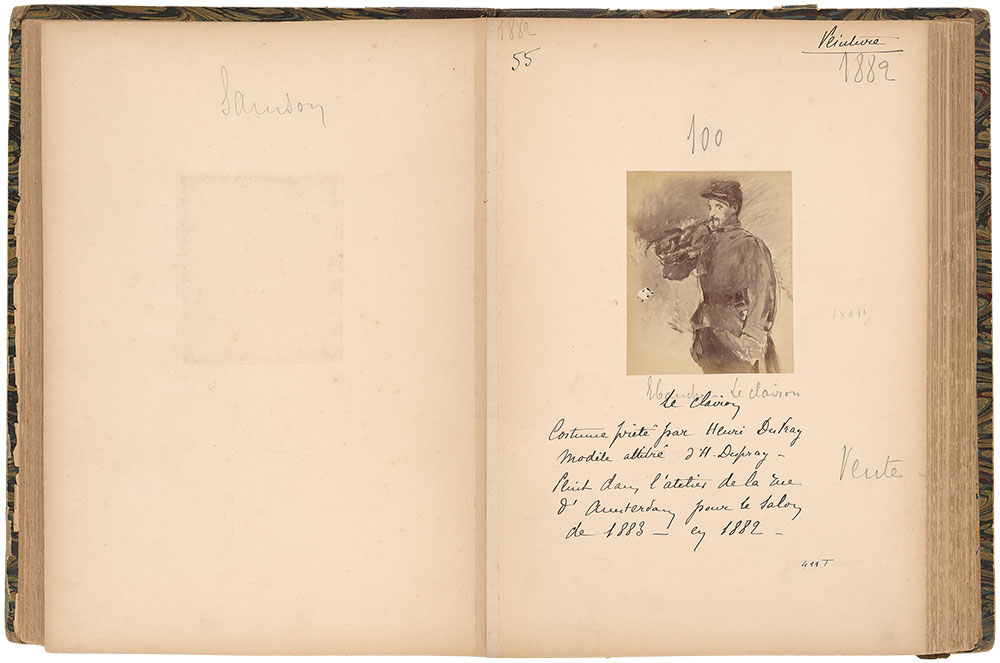 Samson
1882
55
Peinture
1882
100
Ebauche Le clairon
Le clairon
Costume prêté par Henri Dupray
Modèle attitré d'H. Dupray –
Peint dans l'atelier de la rue
d'Amsterdam pour le Salon
de 1883 – en 1882 –
Vente –
411 T